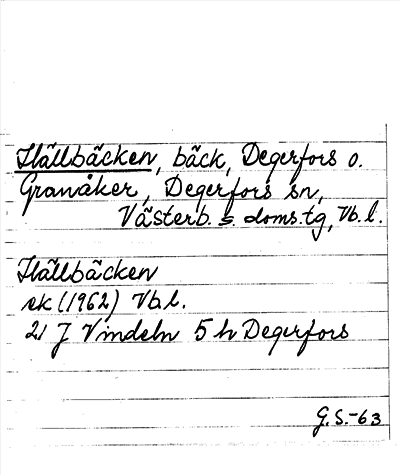 Hällbäcken, bäck, Degerfors o.
Granåker, Degerfors sn,
Västerb. s. doms.tg, Vb.l.
Hällbäcken
ek (1962) Vb.l.
21 J Vindeln 5 h Degerfors
G.S.-63